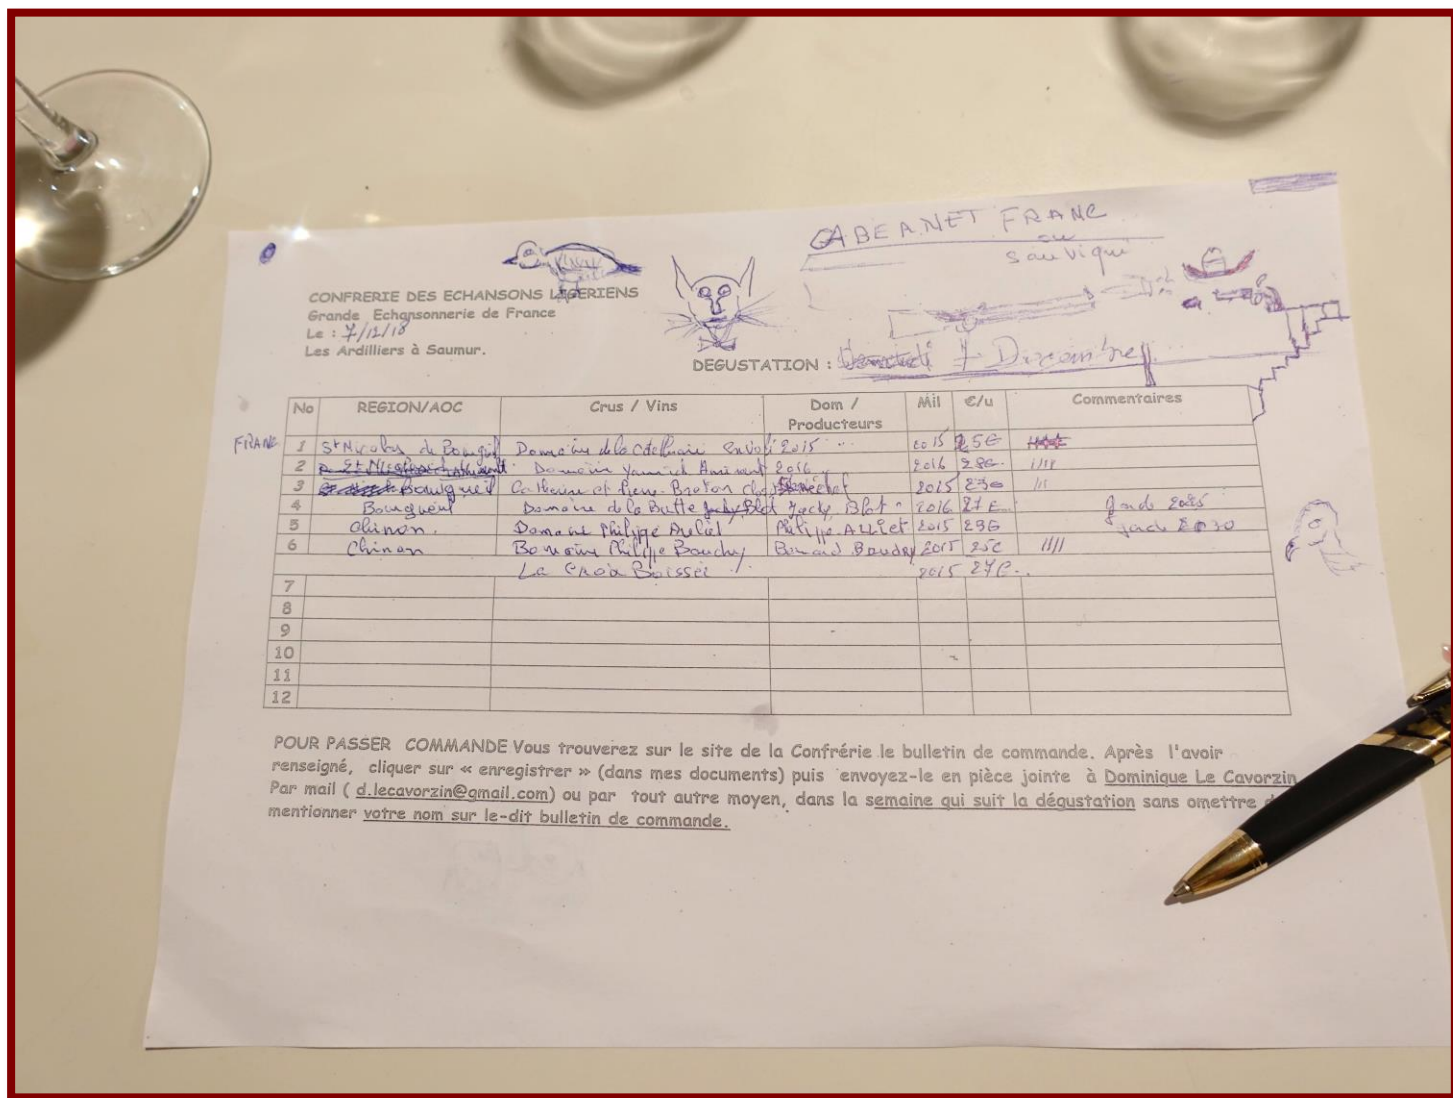 CABEANET FRANC
ou
sauvigni
CONFRERIE DES ECHANSONS LIGERIENS
Grande Echansonnerie de France
Le : 7/12/18
Les Ardilliers à Saumur.
DEGUSTATION : 7 Dixambre
No REGION/AOC Crus / Vins Dom / Producteurs Mil €/u Commentaires
FRANC 1 St Nicolas de Bourgueil Domaine de la Cotelleraie envol 2015 2015 25€
2 Domaine Yannick Amirault 2016 2016 28€ ////
3 Bourgueil Catherine et Pierre Breton 2015 23€ ///
4 Bourgueil Domaine de la Butte Jacky Blot 2016 27€ Garde 2025
5 Chinon. Domaine Philippe Philippe ALLiet 2015 29€ garde 2030
6 Chinon Domaine Philippe Baudry Bernard Baudry 2015 25€ ////
La Croix Boissée 2015 27€
7
8
9
10
11
12
POUR PASSER COMMANDE Vous trouverez sur le site de la Confrérie le bulletin de commande. Après l'avoir
renseigné, cliquer sur « enregistrer » (dans mes documents) puis envoyez-le en pièce jointe à Dominique Le Cavorzin
Par mail ( d.lecavorzin@gmail.com) ou par tout autre moyen, dans la semaine qui suit la dégustation sans omettre de
mentionner votre nom sur le-dit bulletin de commande.